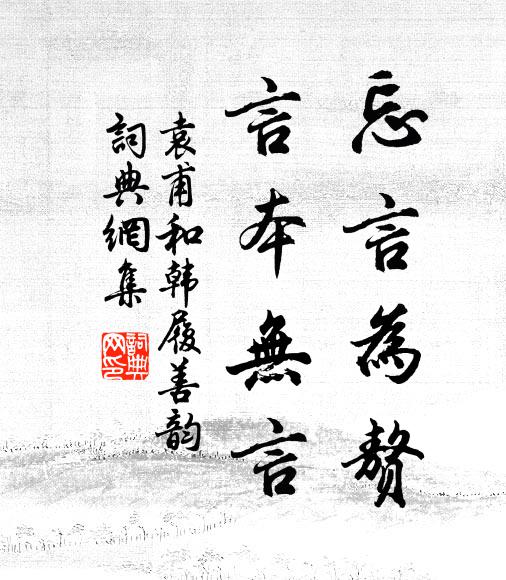 忘言為贅
言本無言
袁甫和韩履善韵
詞典網集
詞典
网印